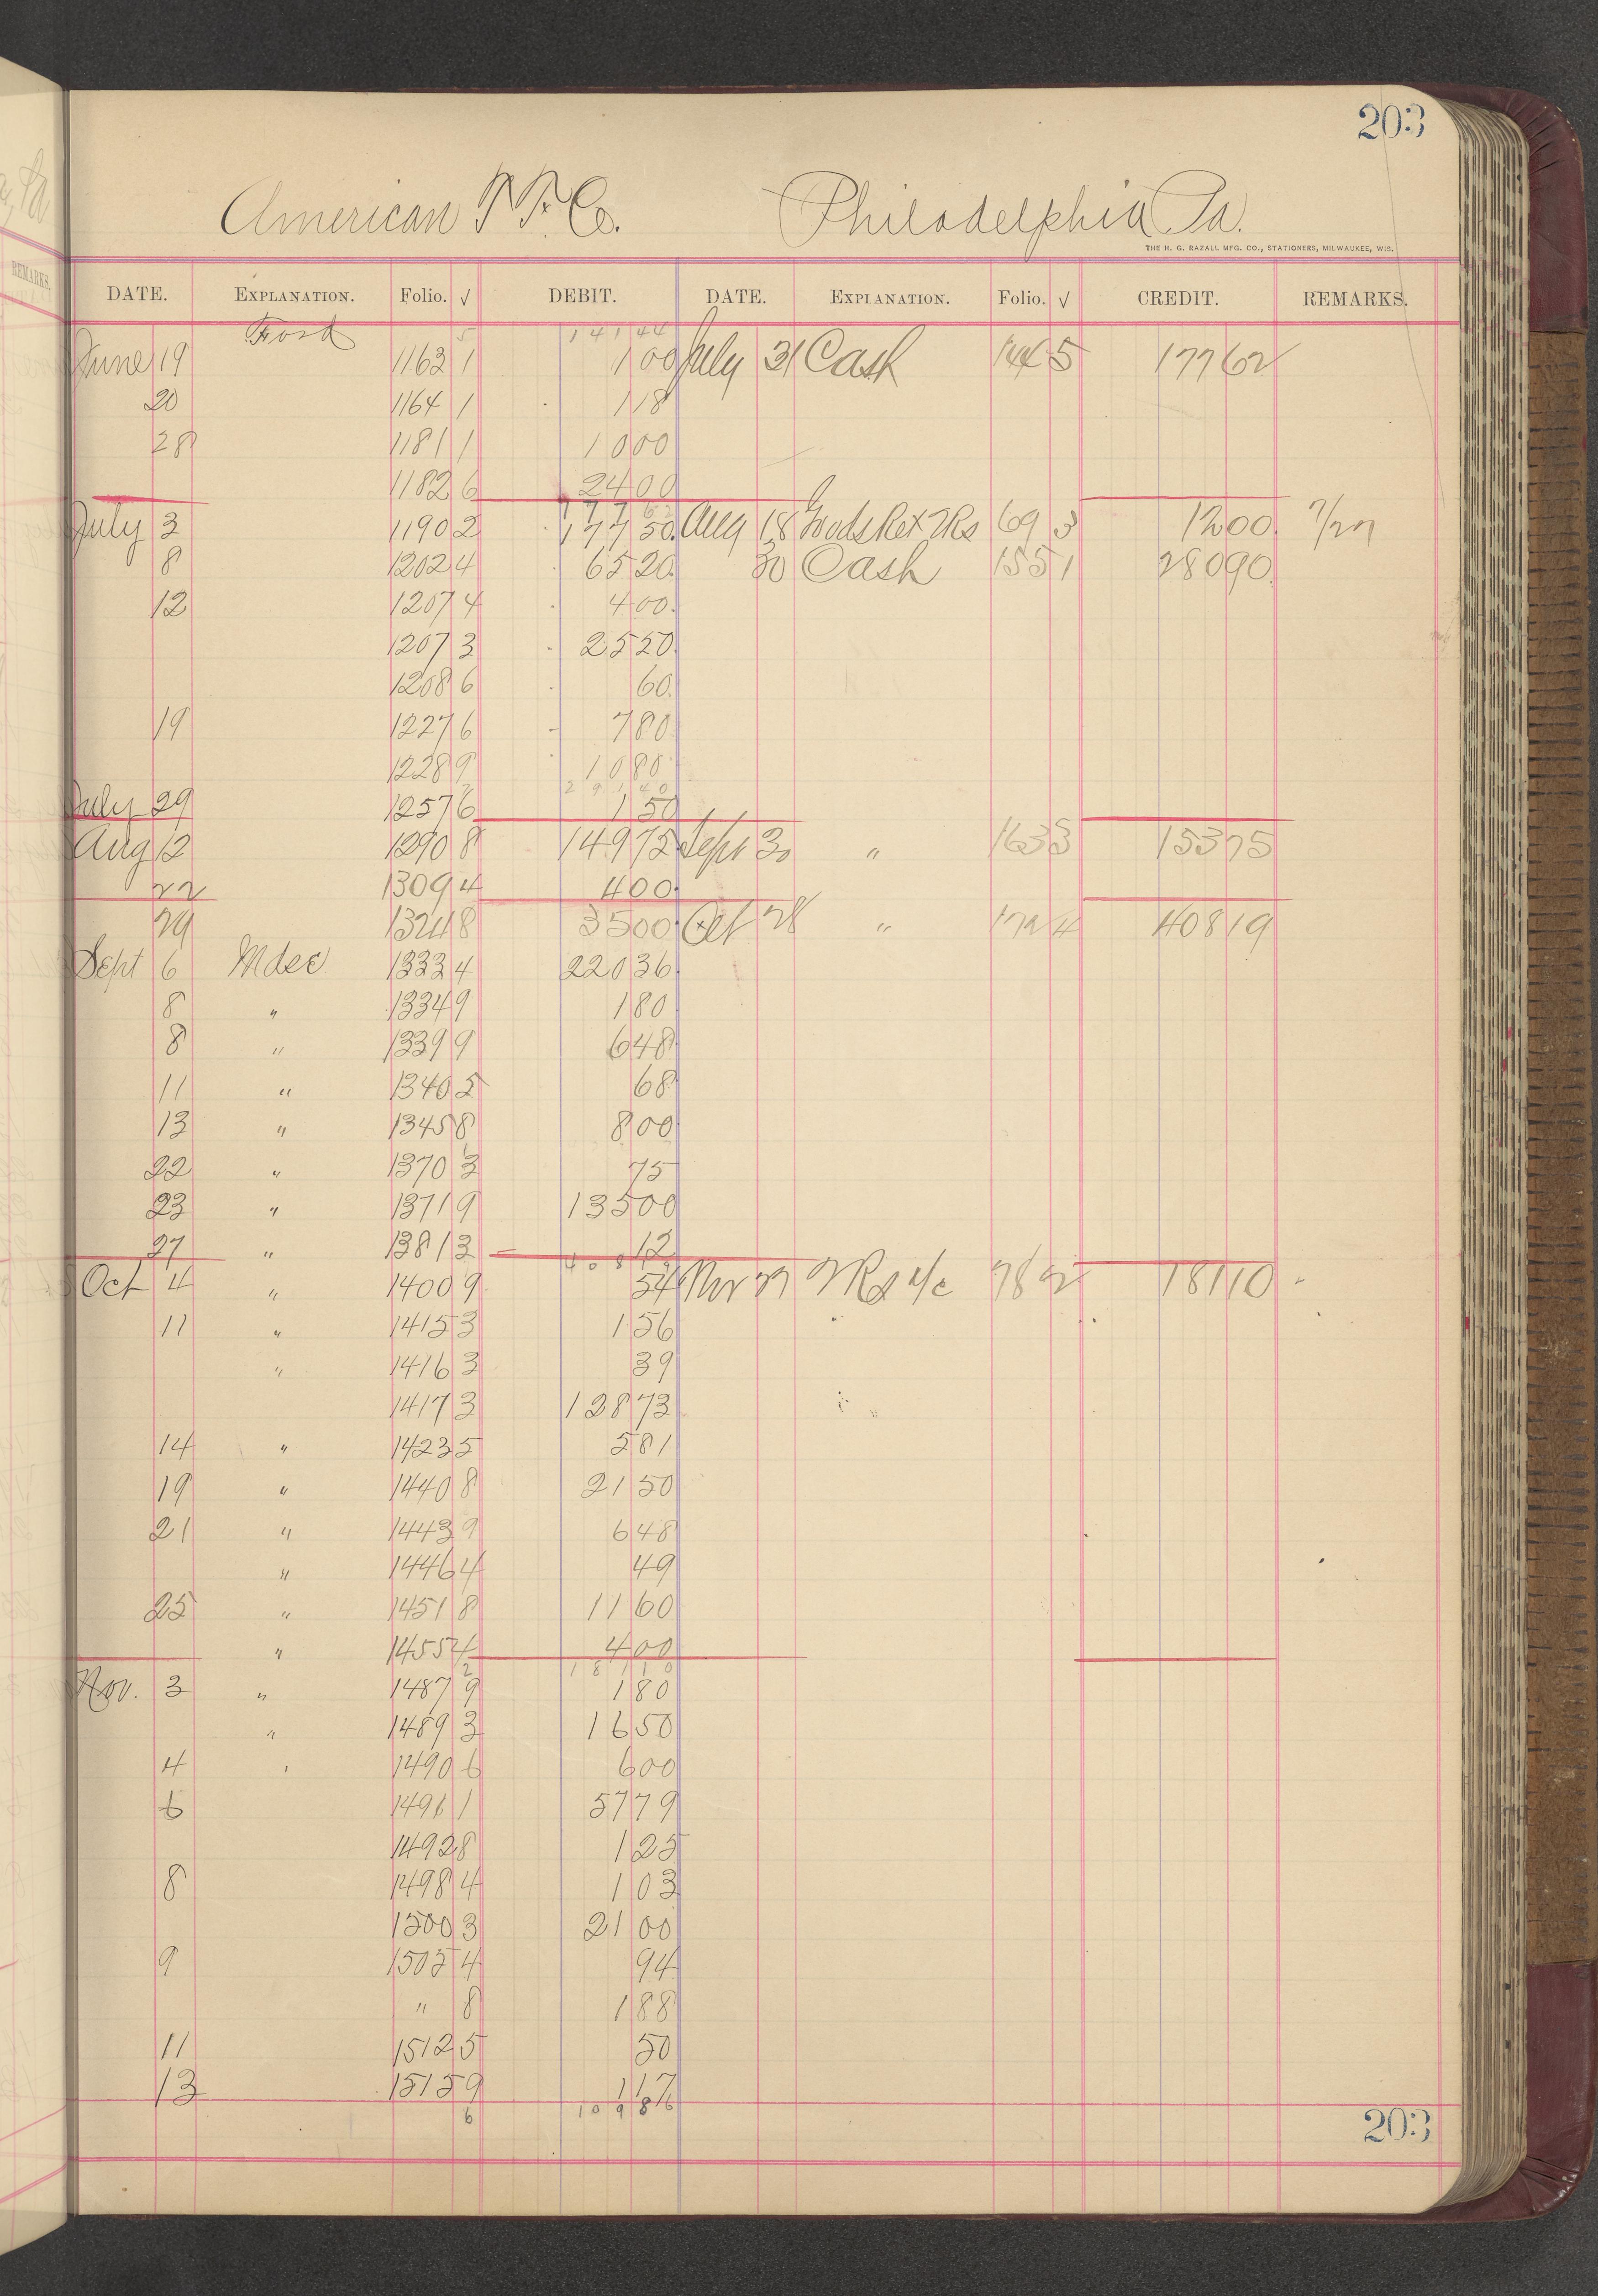 203
American T. F. Co. Philadelphia Pa.
THE H. G. RAZALL MFG. CO., STATIONERS, MILWAUKEE, WIS.
REMARKS.
DATE. EXPLANATION. Folio. √ DEBIT. DATE. EXPLANATION. Folio. √ CREDIT. REMARKS.
Ford 5 141 44
June 19 1163 1 1 00 July 31 Cash 144 5 177 62
20 1164 1 1 18
28 1181 1 10 00
1182 6 24 00
177 62
July 3 1190 2 177 50 Aug 18 Goods Ret 69 3 12 00 7/27
8 1202 4 65 20 30 Cash 155 1 280 90
12 1207 4 4 00
1207 3 25 50
1208 6 60
19 1227 6 7 80
1228 9 10 80
291 40
July 29 1257 6 1 50
Aug 12 1290 8 149 75 Sept 30 " 163 3 153 75
22 1309 4 4 00
29 1324 8 35 00 Oct 28 " 172 4 408 19
Sept 6 Mdse 1333 4 220 36
8 " 1334 9 1 80
8 " 1339 9 6 48
11 " 1340 5 68
13 " 1345 8 8 00
22 " 1370 3 75
23 " 1371 9 135 00
27 " 1381 3 12
408 19
Oct 4 " 1400 9 54 Nov 27 a/c 78 2 181 10
11 " 1415 3 1 56
" 1416 3 39
1417 3 128 73
14 " 1423 5 5 81
19 " 1440 8 21 50
21 " 1443 9 6 48
" 1446 4 49
25 " 1451 8 11 60
" 1455 4 4 00
2 181 10
Nov. 3 " 1487 9 1 80
" 1489 3 16 50
4 " 1490 6 6 00
6 1496 1 57 79
1492 8 1 25
8 1498 4 1 03
1500 3 21 00
9 1505 4 94
" 8 1 88
11 1512 5 50
13 1515 9 1 17
6 109 86
203